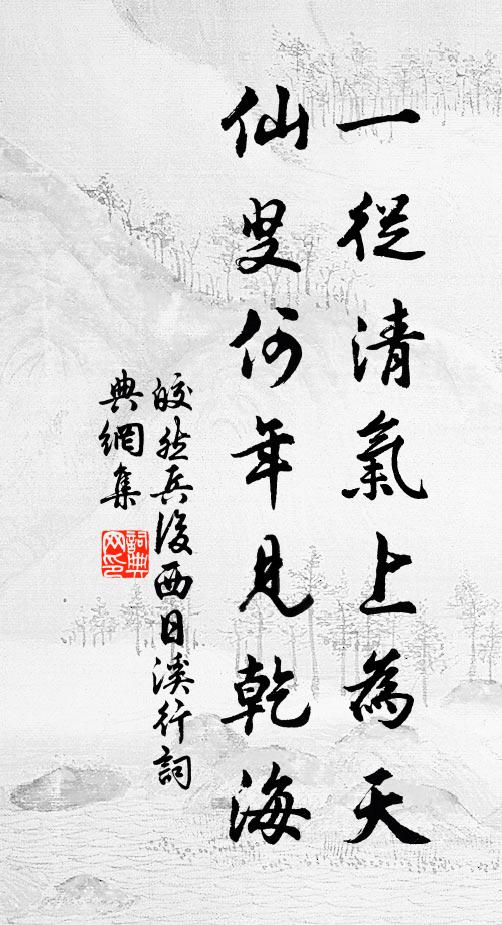 一從清氣上為天
仙叟何年見乾海
皎然兵後西日溪行詞
典網集
詞典網印